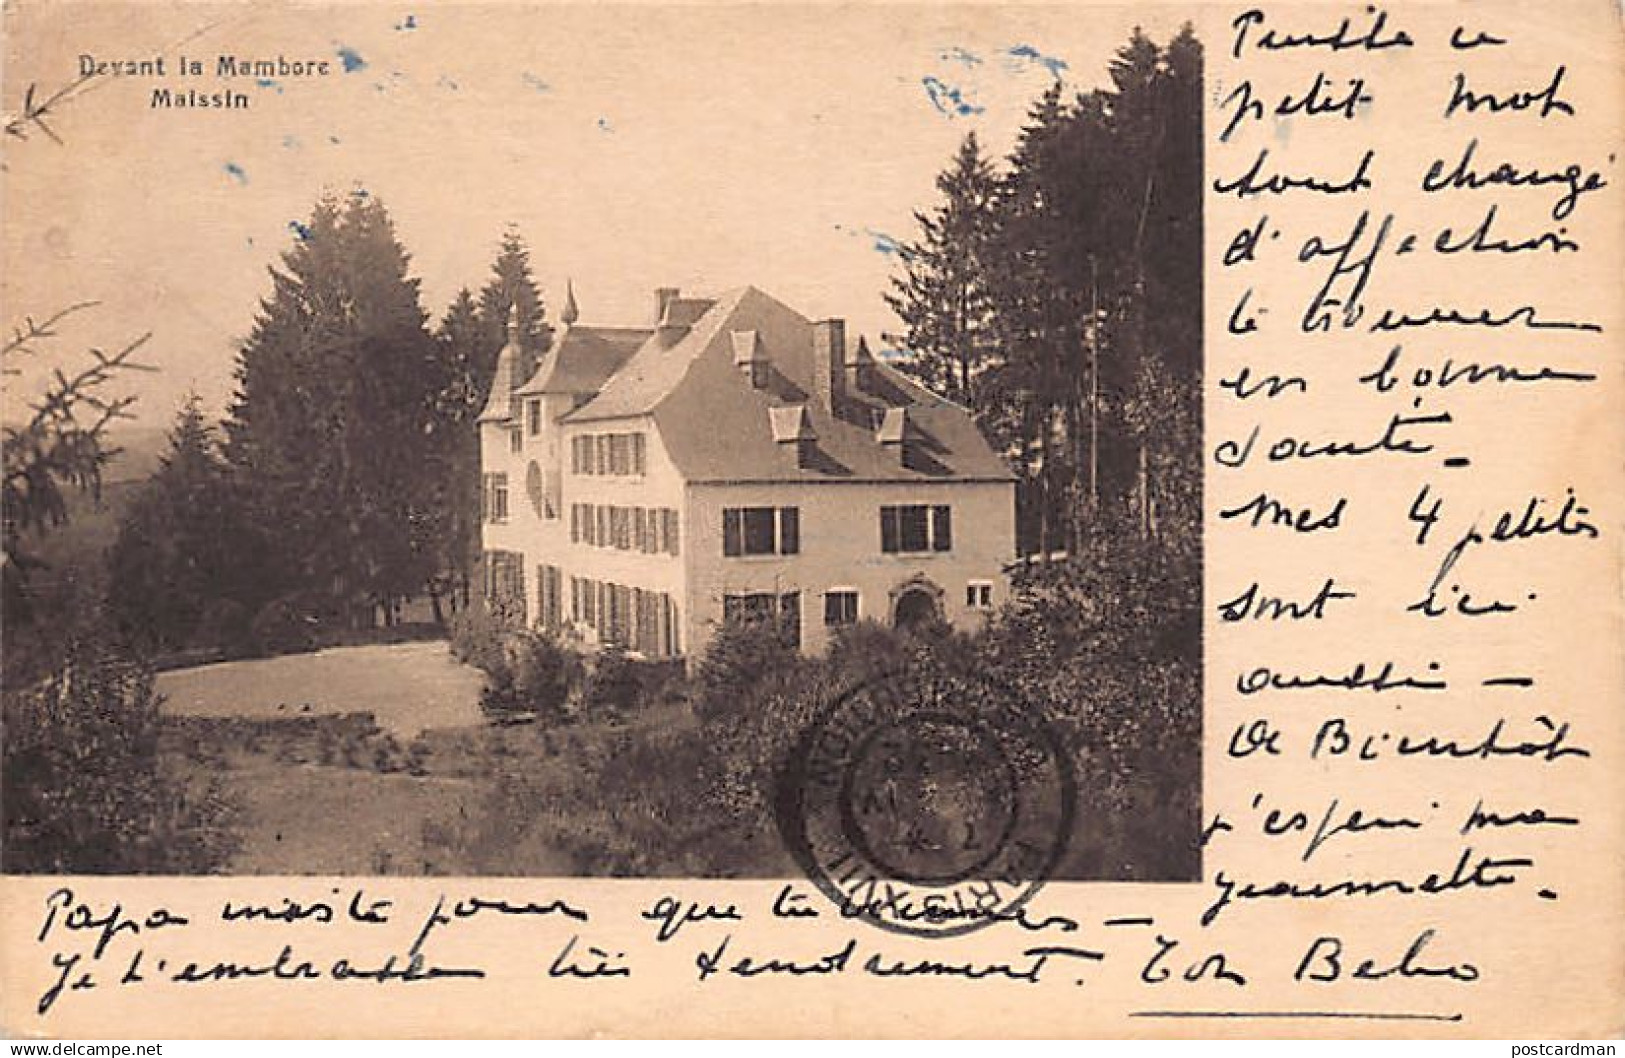 Devant la Mambore
Maissin
Puisse ce
petit mot
tout chargé
d'affection
te trouver
en bonne
santé_
Mes 4 petits
sont ici
aussi —
A Bientôt
j'espère ma
Jeannette.
Papa insiste pour que tu viennes —
Je t'embrasse très tendrement. Ton Bebo
PARIS XVII
delcampe.net
postcardman